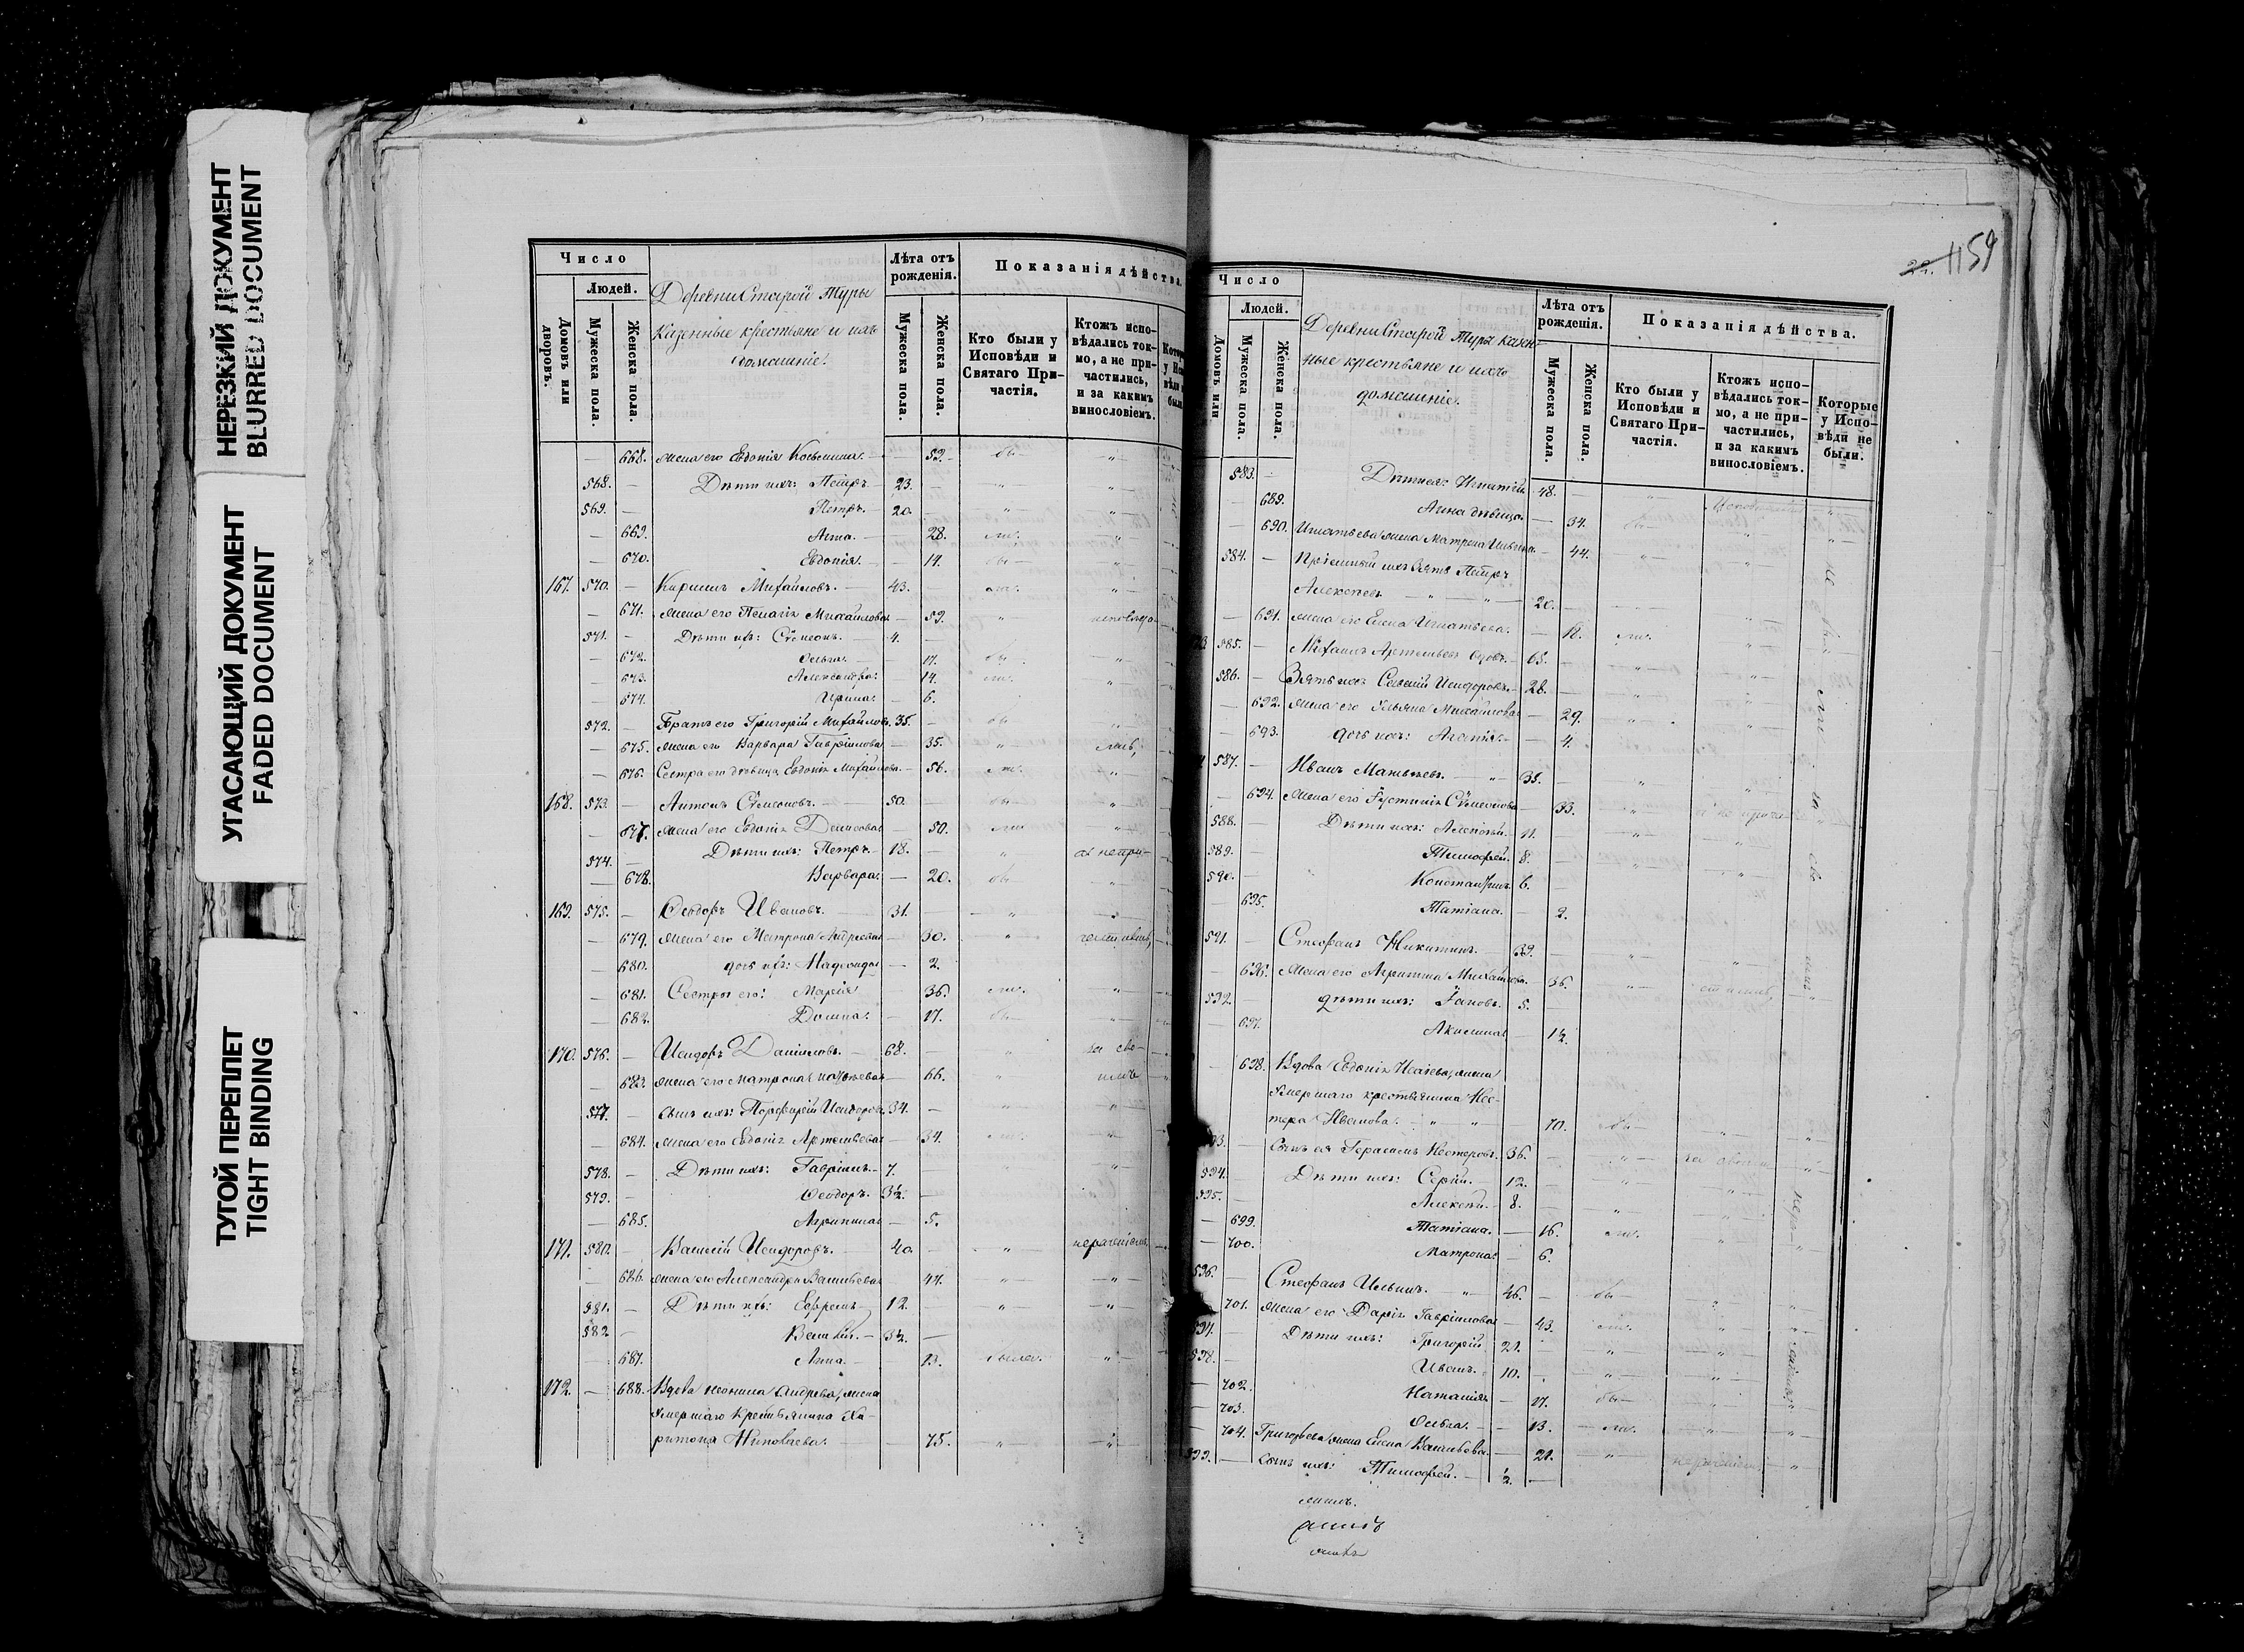 НЕРЕЗКИЙ ДОКУМЕНТ
BLURRED DOCUMENT
УГАСАЮЩИЙ ДОКУМЕНТ
FADED DOCUMENT
ТУГОЙ ПЕРЕПЛЕТ
TIGHT BINDING
Число
Людей.
Домовъ или дворовъ.
Мужеска пола.
Женска пола.
Деревни Старой Туры
казенные крестьяне и ихъ
домашніе.
Лѣта отъ рожденія.
Мужеска пола.
Женска пола.
Показанія дѣйства.
Кто были у Исповѣди и Святаго Причастія.
Ктожъ исповѣдались токмо, а не причастились, и за какимъ винословіемъ.
668. жена его Евдокія Косьмина. 52.
568. Дѣти ихъ: Петръ 23.
569. Петръ. 20.
669. Анна. 28.
670. Евдокія. 14.
167. 570. Кирилъ Михайловъ. 43.
671. жена его Пелагія Михайлова 52.
571. Дѣти ихъ: Сѷмеонъ. 4.
672. Ольга. 17.
673. Александра. 14.
674. Ирина. 6.
572. Братъ его Григорій Михайловъ. 35.
675. жена его Варвара Гавріилова 35.
676. Сестра его дѣвица Евдокія Михайлова. 56.
168. 573. Антонъ Сѷмеоновъ. 50.
677. жена его Евдокія Денисова 50.
574. Дѣти ихъ: Петръ. 18.
678. Варвара. 20.
169. 575. Ѳеодоръ Ивановъ. 31.
679. жена его Матрона Андреева 30.
680. дочь ихъ: 2.
681. Сестры его: Марія 36.
682. Домна. 17.
170. 576. Исидоръ Даніиловъ. 68.
683. жена его Матрона 66.
577. сынъ ихъ: Порфирій Исидоровъ. 34.
684. жена его Евдокія Артемьева 34.
578. Дѣти ихъ: Гавріилъ. 7.
579. Ѳеодоръ. 3½.
685. Агрипина 5.
171. 580. Василій Исидоровъ. 40.
686. жена его Александра Васильева 44.
581. Дѣти ихъ: Ефремъ 12.
582. Василій. 3½.
687. Анна. 13. была.
172. 688. Вдова Неонила Андреева, жена
умершаго крестьянина Ха-
ритона Николаева. 75.
1159
Число
Людей.
Домовъ или
Мужеска пола.
Женска пола.
Деревни Старой Туры казен-
ные крестьяне и ихъ
домашніе.
Лѣта отъ рожденія.
Мужеска пола.
Женска пола.
Показанія дѣйства.
Кто были у Исповѣди и Святаго Причастія.
Ктожъ исповѣдались токмо, а не причастились, и за какимъ винословіемъ.
Которые у Исповѣди не были.
583. Дѣти ея: Игнатій 48.
689. Анна дѣвица. 34.
690. Игнатьева жена Матрона Ильина 44.
584. Пріемный ихъ зять Петръ
Алексѣевъ 20.
691. жена его Елена Игнатьева. 18.
585. Михаилъ Артемьевъ вдовъ. 65.
586. Зять ихъ Савелій Исидоровъ. 28.
692. жена его Ульяна Михайлова 29.
693. дочь ихъ: Агапія. 4.
587. Иванъ Матвѣевъ. 35.
694. жена его Іустинія Сѷмеонова 33.
588. Дѣти ихъ: Алексѣй. 11.
589. Тимофей. 8.
590. Константинъ. 6.
695. Татіана. 2.
591. Стефанъ Никитинъ. 39.
696. жена его Агрипина Михайлова. 36.
592. дѣти ихъ: Іаковъ. 5.
697. Акилина 12.
698. Вдова Евдокія Исаева, жена
умершаго крестьянина Нес-
тера Иванова. 70.
593. Сынъ ея Герасимъ Нестеровъ. 36.
594. Дѣти ихъ: Сергій. 12.
595. Алексѣй. 8.
699. Татіана. 16.
700. Матрона. 6.
596. Стефанъ Ильинъ. 46.
701. жена его Дарія Гавріилова 43.
597. Дѣти ихъ: Григорій 21.
598. Иванъ. 10.
702. Наталія 17.
703. Ольга. 13.
704. Григорьева жена Елена Васильева. 21.
599. сынъ ихъ: Тимофей. ½.